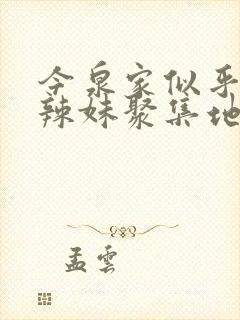 今泉家似乎
辣妹聚集地
孟雲